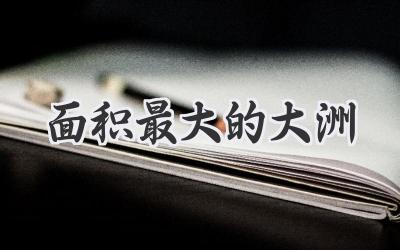 面积最大的大洲